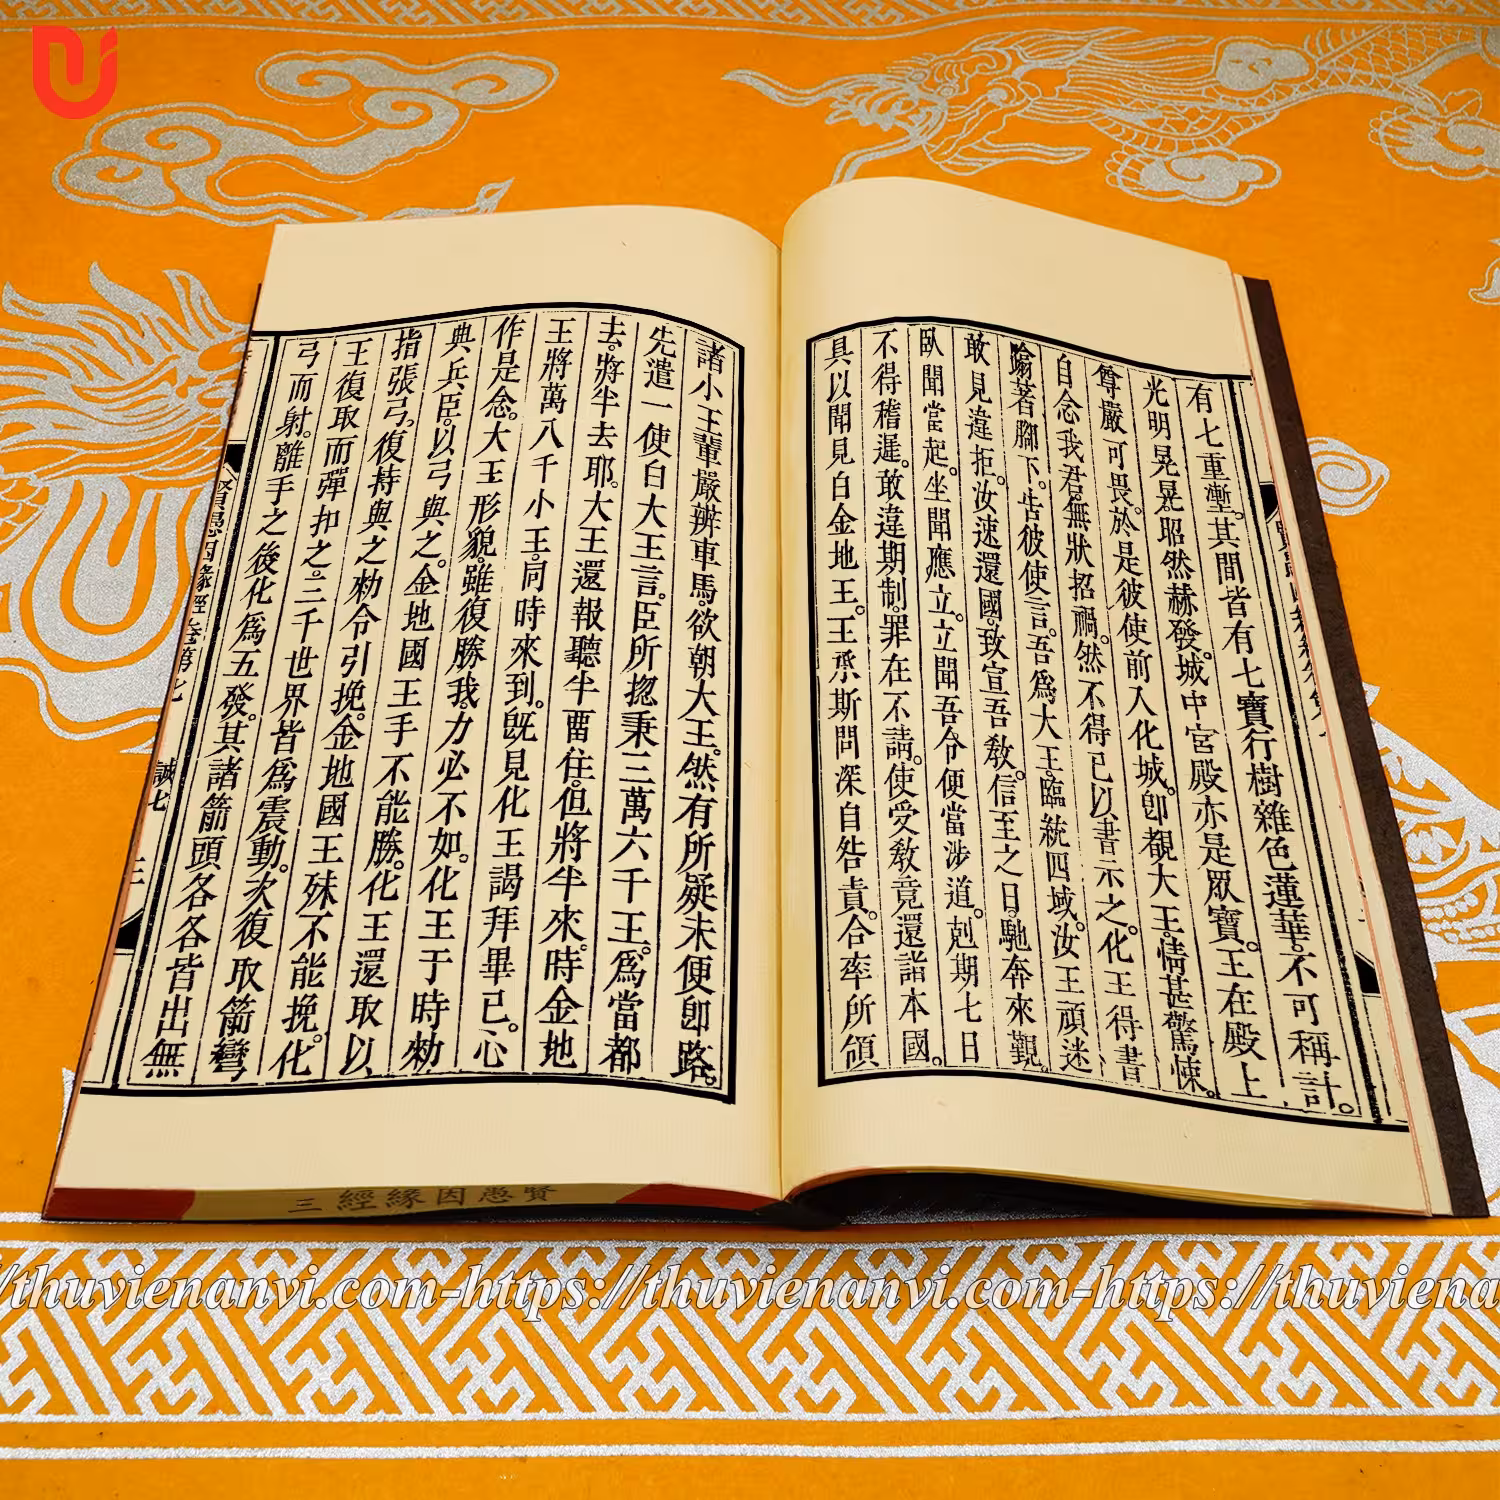 有七重壍。其間皆有七寶行樹雜色蓮華。不可稱計。
光明晃晃。昭然赫發。城中宮殿亦是眾寶。王在殿上
尊嚴可畏。於是彼使前入化城。卽覩大王。情甚驚悚。
自念我君。無狀招禍。然不得已以書示之。化王得書
著腳下。告彼使言。吾爲大王。臨統四域。汝王頑迷
敢見違拒。汝速還國。致宣吾敎。信至之日。馳奔來覲。
臥聞當起。坐聞應立。立聞吾令便當涉道。剋期七日
不得稽遲。敢違期制。罪在不請。使受敎竟還諸本國。
具以聞見白金地王。王承斯問深自咎責。合率所領
諸小王輩嚴辨車馬。欲朝大王。然有所疑未便卽路。
先遣一使白大王言。臣所揔秉三萬六千王。爲當都
去。將半去耶。大王還報聽半畱往。但將半來。時金地
王將萬八千小王。同時來到。旣見化王謁拜畢已。心
作是念。大王形貌。雖復勝我。力必不如。化王于時勑
典兵臣。以弓與之。金地國王手不能勝。化王還取以
指張弓。復持與之勑令引挽。金地國王殊不能挽。化
王復取而彈扣之。三千世界皆爲震動。次復取箭彎
弓而射。離手之後化爲五發。其諸箭頭各各皆出無
賢愚因緣經卷第七 誠七
三 經緣因愚賢
//thuvienanvi.com-https://thuvienanvi.com-https://thuviena